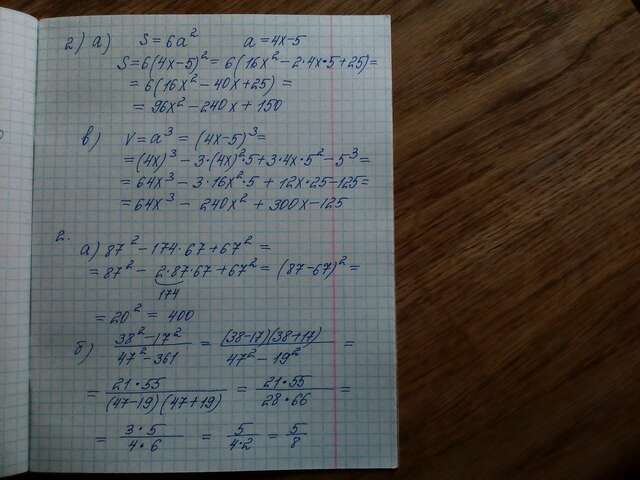 2) а) S = 6a² a = 4x-5
S = 6(4x-5)² = 6(16x² - 2·4x·5+25) =
= 6(16x² - 40x + 25) =
= 96x² - 240x + 150
в) V = a³ = (4x-5)³ =
= (4x)³ - 3·(4x)²·5 + 3·4x·5² - 5³ =
= 64x³ - 3·16x²·5 + 12x·25 - 125 =
= 64x³ - 240x² + 300x - 125
2.
а) 87² - 174·67 + 67² =
= 87² - 2·87·67 + 67² = (87-67)² =
174
= 20² = 400
б) (38² - 17²)/(47² - 361) = ((38-17)(38+17))/(47² - 19²) =
= (21·55)/((47-19)(47+19)) = (21·55)/(28·66) =
= (3·5)/(4·6) = 5/(4·2) = 5/8